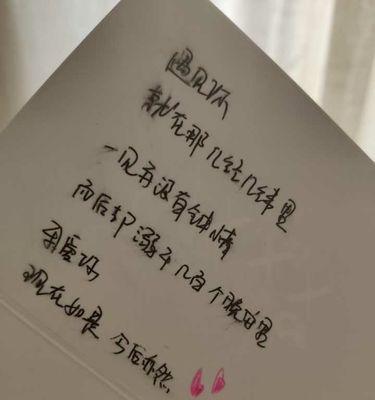 遇见你
就在那几经几纬里
一见再没有钟情
而后却溺于几百个里
好
现在如是 今后亦然